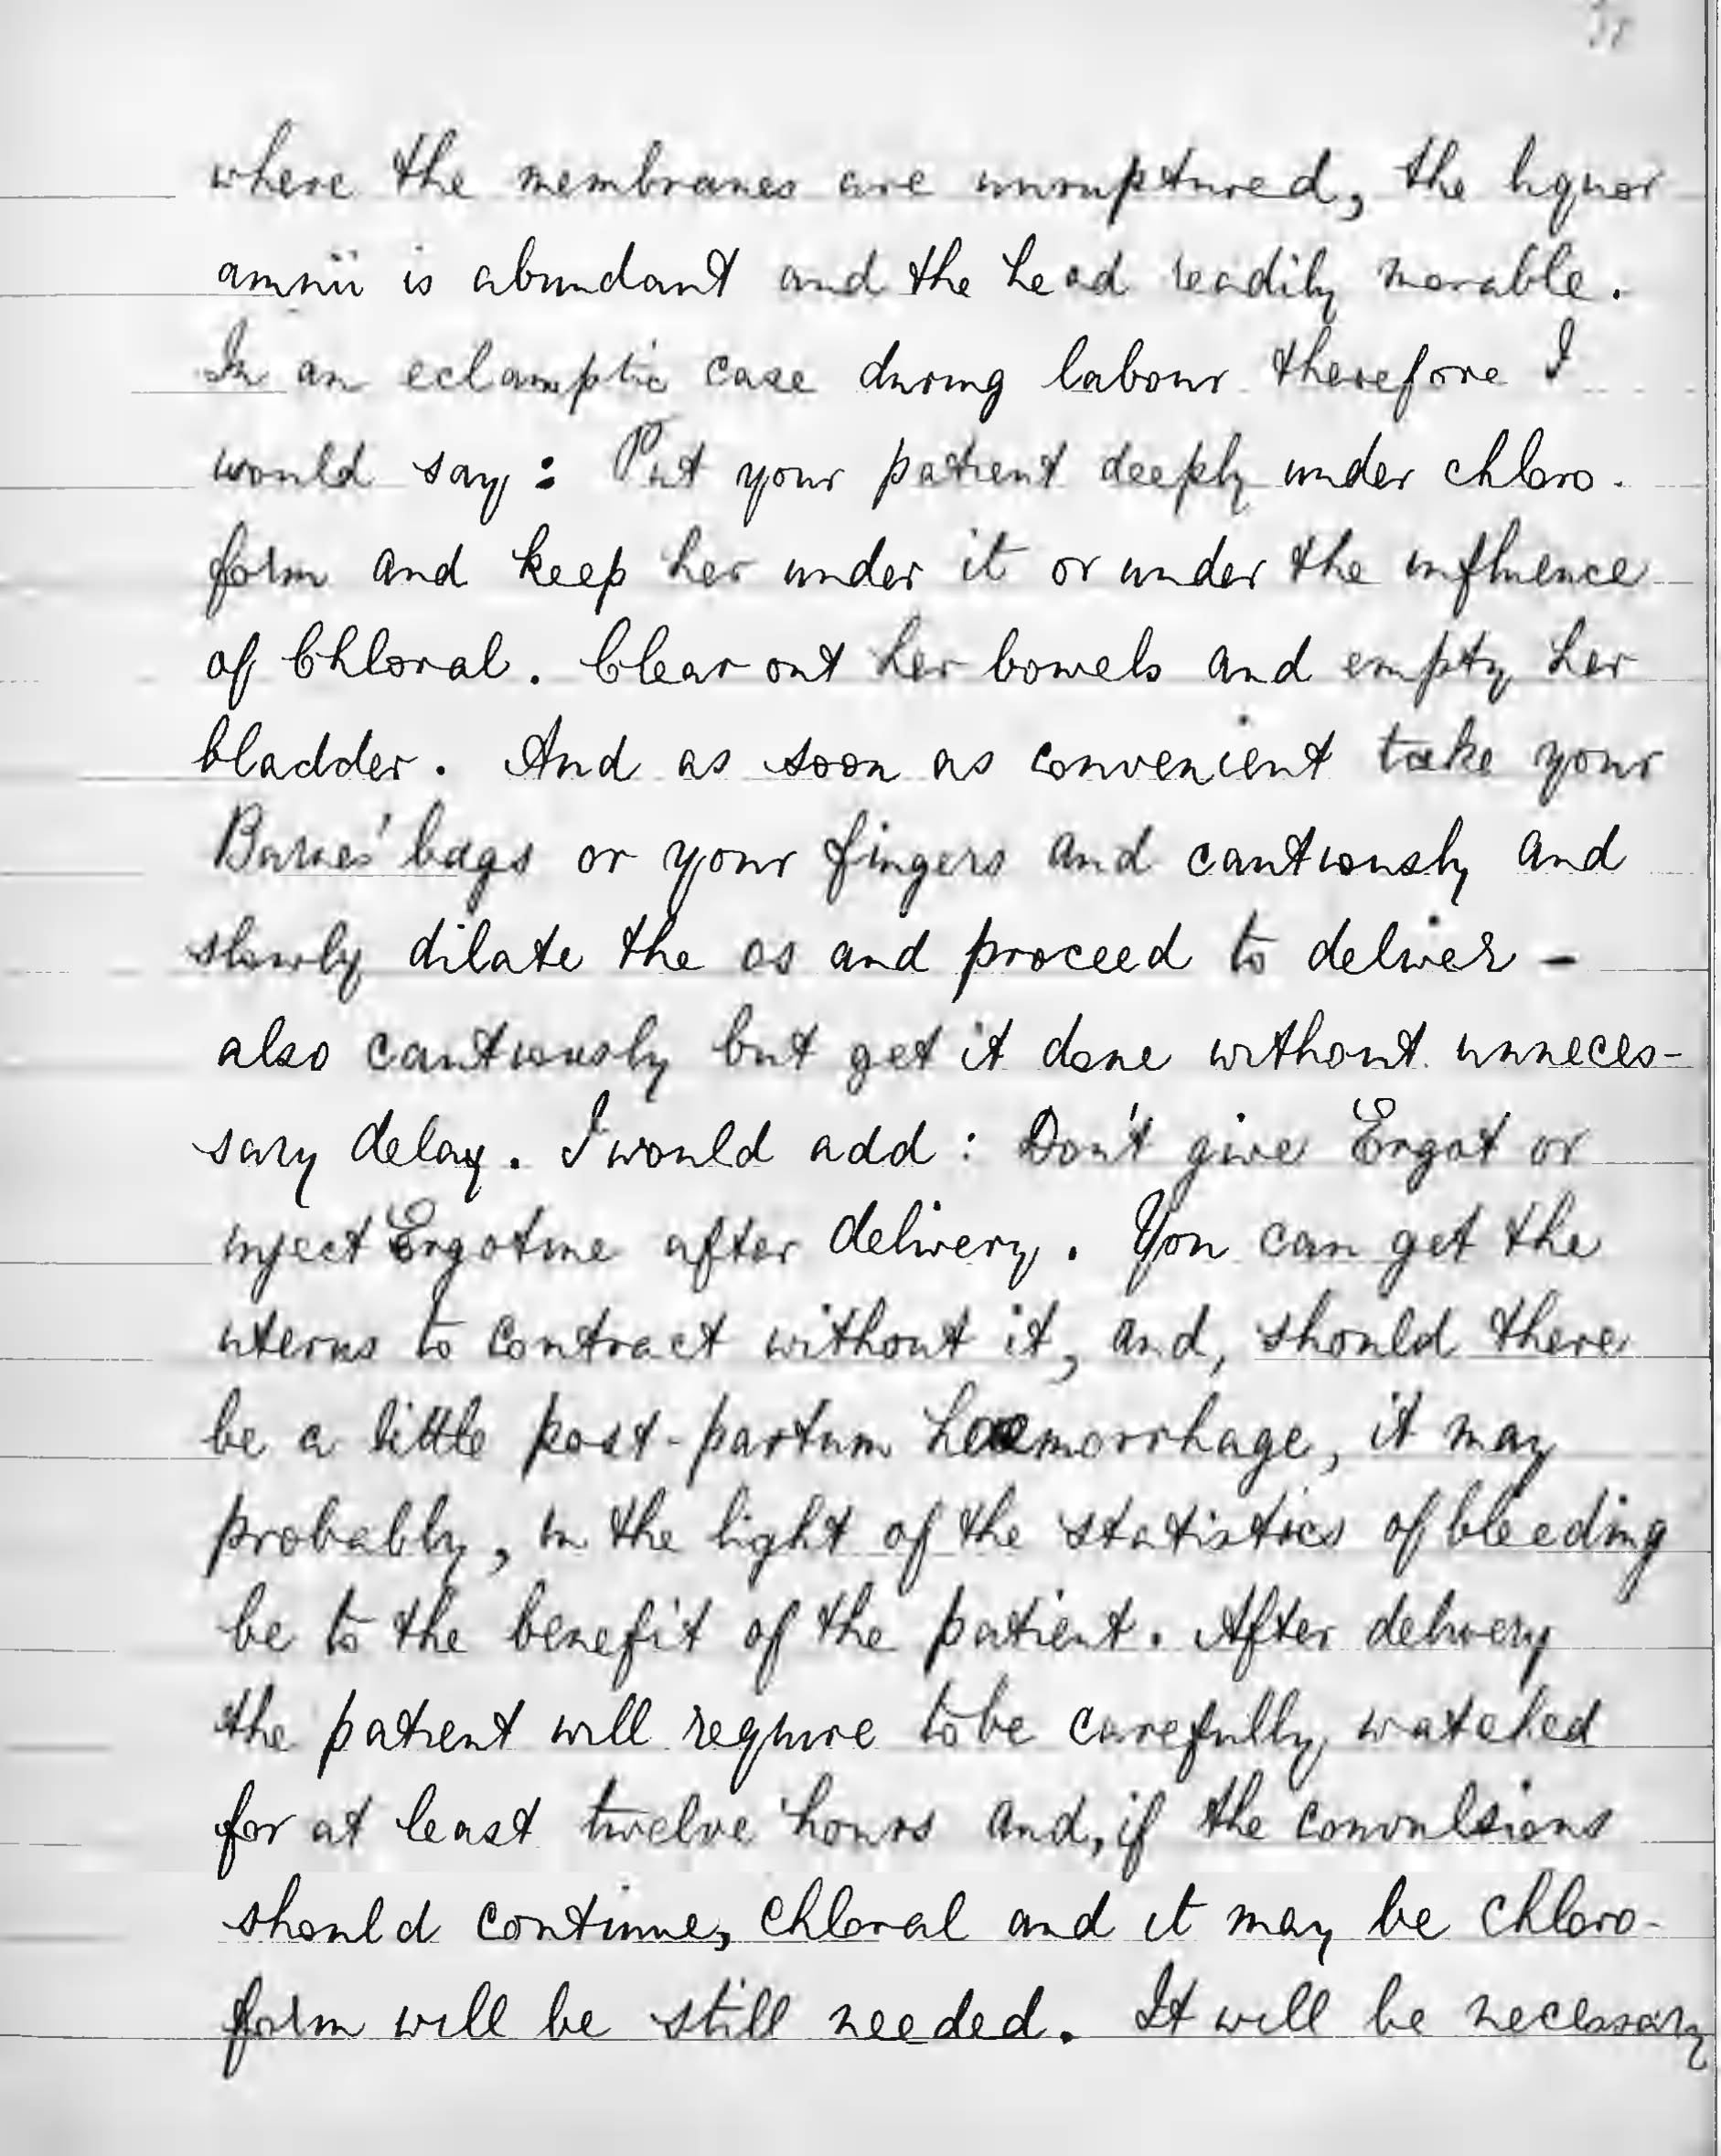 where the membranes are unruptured, the liquor
amnii is abundant and the head readily movable.
In an eclamptic case during labour therefore I
would say: Put your patient deeply under chloro-
form and keep her under it or under the influence
of Chloral. Clear out her bowels and empty her
bladder. And as soon as convenient take your
Barnes' bags or your fingers and cautiously and
slowly dilate the os and proceed to deliver -
also cautiously but get it done without unneces-
sary delay. I would add: Don't give Ergot or
inject Ergotine after delivery. You can get the
uterus to contract without it, and, should there
be a little post-partum haemorrhage, it may
probably, in the light of the statistics of bleeding
be to the benefit of the patient. After delivery
the patient will require to be carefully watched
for at least twelve hours and, if the convulsions
should continue, chloral and it may be chloro-
form will be still needed. It will be necessary